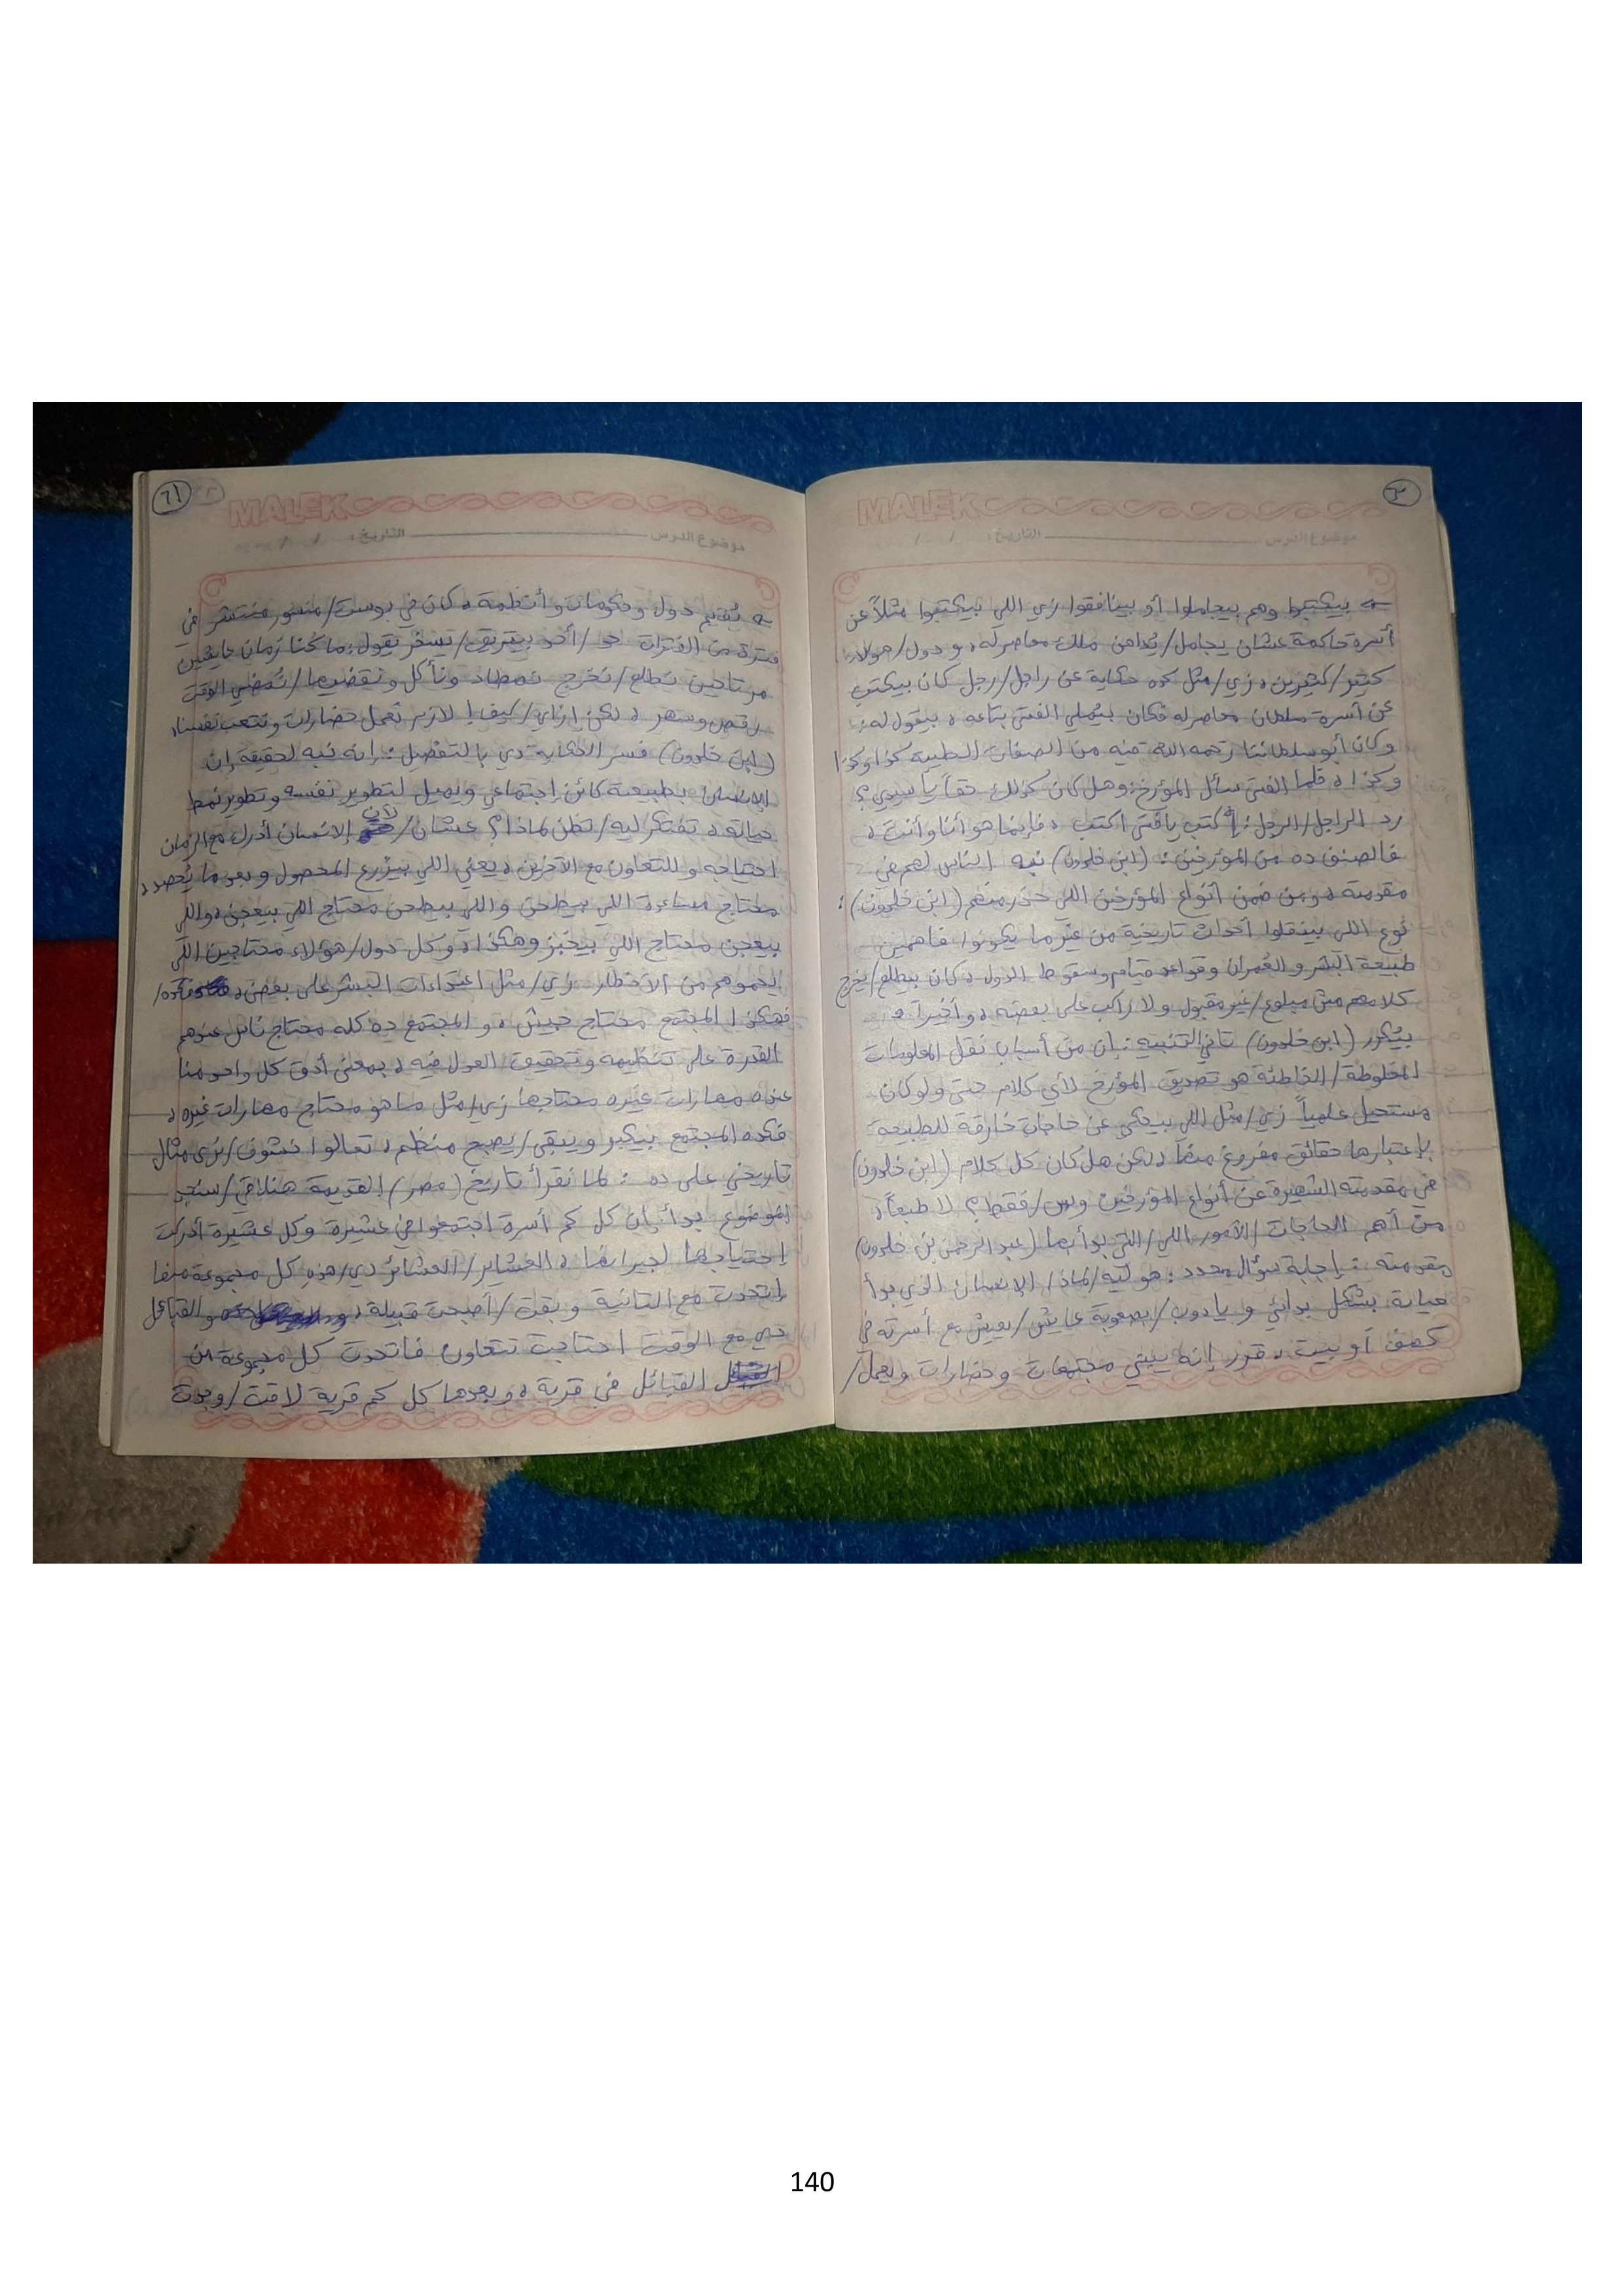 ٣
MALEK
موضوع الدرس التاريخ: / /
بيكتبوا وهم بيجاملوا أو بينافقوا زي اللي بيكتبوا مثلاً عن
أسرة حاكمة عشان يجامل/يُداهن ملك معاصر له، و دول/هؤلاء
كتير/كثيرين، زي/مثل كده حكاية عن راجل/رجل كان بيكتب
عن أسرة سلطان معاصر له فكان بيُملي الفتى بتاعه، بيقول له:
وكان أبو سلطاننا رحمه الله فيه من الصفات الطيبة كذا وكذا
وكذا، فلما الفتى سأل المؤرخ: وهل كان كذلك حقاً يا سيدي؟
رد الراجل/الرجل: أكتب يا فتى اكتب، فإنما هو أنا وأنت،
فالصنف ده من المؤرخين: (ابن خلدون) نبه الناس لهم في
مقدمته، ومن ضمن أنواع المؤرخين اللي حذر منهم (ابن خلدون):
نوع اللي بينقلوا أحداث تاريخية من غير ما يكونوا فاهمين
طبيعة البشر و العُمران وقواعد قيام وسقوط الدول، كان بيطلع/يخرج
كلامهم مش مبلوع/غير مقبول ولا راكب على بعضه، وأخيراً
بيُكرر (ابن خلدون) تاني التنبيه: إن من أسباب نقل المعلومات
المغلوطة/الخاطئة هو تصديق المؤرخ لأي كلام حتى ولو كان
مستحيل علمياً زي/مثل اللي بيحكي عن حاجات خارقة للطبيعة
بإعتبارها حقائق مفروغ منها، لكن هل كان كل كلام (ابن خلدون)
في مقدمته الشهيرة عن أنواع المؤرخين وبس/فقط؟ لا طبعاً،
من أهم الحاجات/الأمور اللي/التي بدأ بها (عبد الرحمن بن خلدون)
مقدمته: إجابة سؤال محدد: هو ليه/لماذا الإنسان الذي بدأ
حياته بشكل بدائي و يا دوب/بصعوبة عايش/يعيش مع أسرته في
كهف أو بيت، قرر إنه يبني مجتمعات و حضارات ويعمل/
MALEK
موضوع الدرس التاريخ: / /
يُقيم دول و حكومات و أنظمة، كان في بوست/منشور منتشر في
فترة من الفترات حد/أحد بيتريق/يسخر يقول: ما كنا زمان عايشين
مرتاحين نطلع/نخرج نصطاد ونأكل ونقضيها/نُمضي الوقت
رقص وسهر، لكن إزاي/كيف! لازم نعمل حضارات ونتعب نفسنا،
(ابن خلدون) فسر الحكاية دي بالتفصيل: إنه نبه لحقيقة إن
الإنسان بطبيعته كائن إجتماعي ويميل لتطوير نفسه وتطوير نمط
حياته، تفتكر ليه/تظن لماذا؟ عشان/لأن الإنسان أدرك مع الزمان
احتياجه و للتعاون مع الآخرين، يعني اللي بيزرع المحصول و بعد ما يُحصده،
محتاج مساعدة اللي بيطحن واللي بيطحن محتاج اللي بيعجن، واللي
بيعجن محتاج اللي بيخبز وهكذا، و كل دول/هؤلاء محتاجين اللي
يحموهم من الأخطار زي/مثل اعتداءات البشر على بعض، فكده/
فهكذا المجتمع محتاج جيش، و المجتمع ده كله محتاج ناس عندهم
القدرة على تنظيمه وتحقيق العدل فيه، بمعنى أدق كل واحد منا
عنده مهارات غيره محتاجها زي/مثل ما هو محتاج مهارات غيره،
فكده المجتمع بيكبر و يبقى/يصبح منظم، تعالوا نشوف/نرى مثال
تاريخي على ده: لما نقرأ تاريخ (مصر) القديمة هنلاقي/سنجد
الموضوع بدأ بإن كل كم أسرة اجتمعوا في عشيرة وكل عشيرة أدركت
إحتياجها لجيرانها، العشاير/العشائر دي/هذه كل مجموعة منها
إتحدت مع التانية و بقت/أصبحت قبيلة، و القبائل
دي مع الوقت احتاجت تتعاون فاتحدت كل مجموعة من
القبائل في قرية، و بعدها كل كم قرية لاقت/وجدت
140